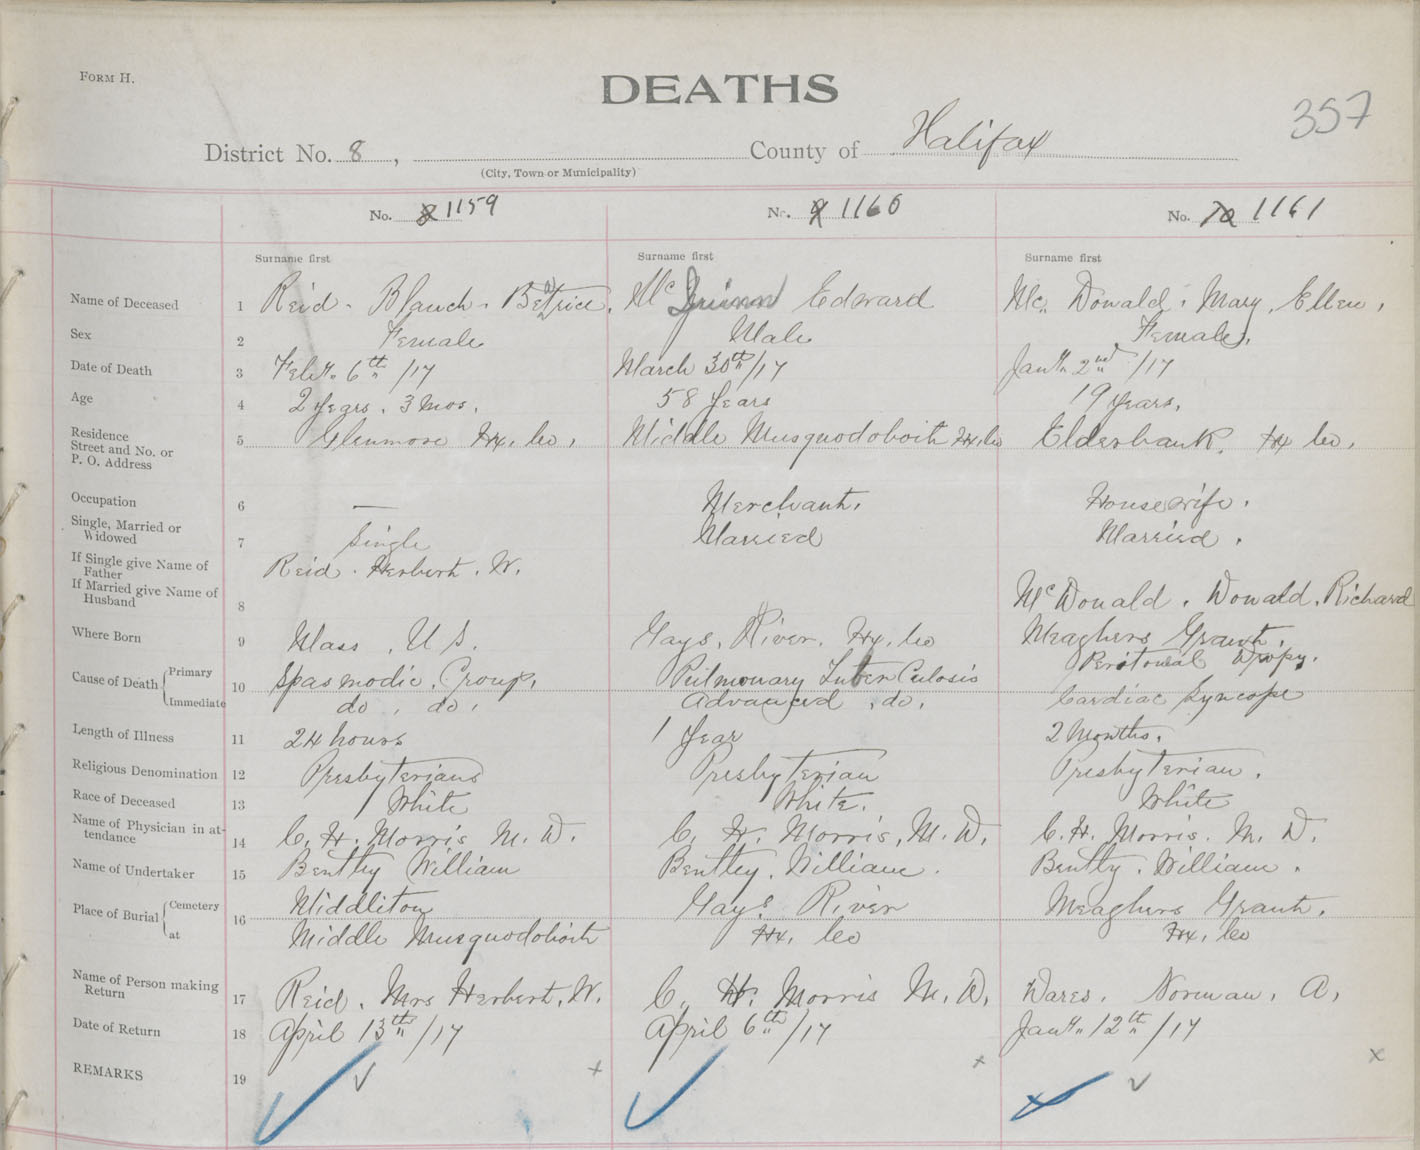 FORM H.
DEATHS
357
District No. 8, County of Halifax
(City, Town or Municipality)
No. 8 1159 No. 9 1160 No. 10 1161
Surname first Surname first Surname first
Name of Deceased 1 Reid - Blanch - Beatrice. Mc Edward Mc. Donald. Mary. Ellen.
Sex 2 Female Male Female.
Date of Death 3 Feb. 6th /17 March 30th/17 Jan. 2nd /17
Age 4 2 years. 3 mos. 58 years 19 years.
Residence
Street and No. or
P. O. Address 5 Glenmore Hx. Co. Middle Musquodoboit Hx. Co Elderbank. Hx Co.
Occupation 6 — Merchant. Housewife.
Single, Married or
Widowed 7 Single Married Married.
If Single give Name of
Father Reid. Herbert. W.
If Married give Name of
Husband 8 McDonald. Donald. Richard
Where Born 9 Mass. U S. Gays. River. Hx. Co Meaghers Grant.
Cause of Death Primary 10 Spasmodic. Croup. Pulmonary Tuber Culosis Peritoneal Dropsy.
Immediate do. do. Advanced .do. Cardiac Syncope
Length of Illness 11 24 hours 1 Year 2 Months.
Religious Denomination 12 Presbyterians Presbyterian Presbyterian.
Race of Deceased 13 White White. White
Name of Physician in at-
tendance 14 C. H. Morris M. D. C. H. Morris. M. D. C. H. Morris. M. D.
Name of Undertaker 15 Bentley William Bentley. William. Bently. William.
Place of Burial Cemetery 16 Middleton Gays River Meaghers Grant.
at Middle Musquodoboit Hx. Co Hx. Co
Name of Person making
Return 17 Reid. Mrs Herbert. W. C. H. Morris M. D. Dares. Norman. A.
Date of Return 18 April 13th/17 April 6th/17 Jan. 12th/17
REMARKS 19